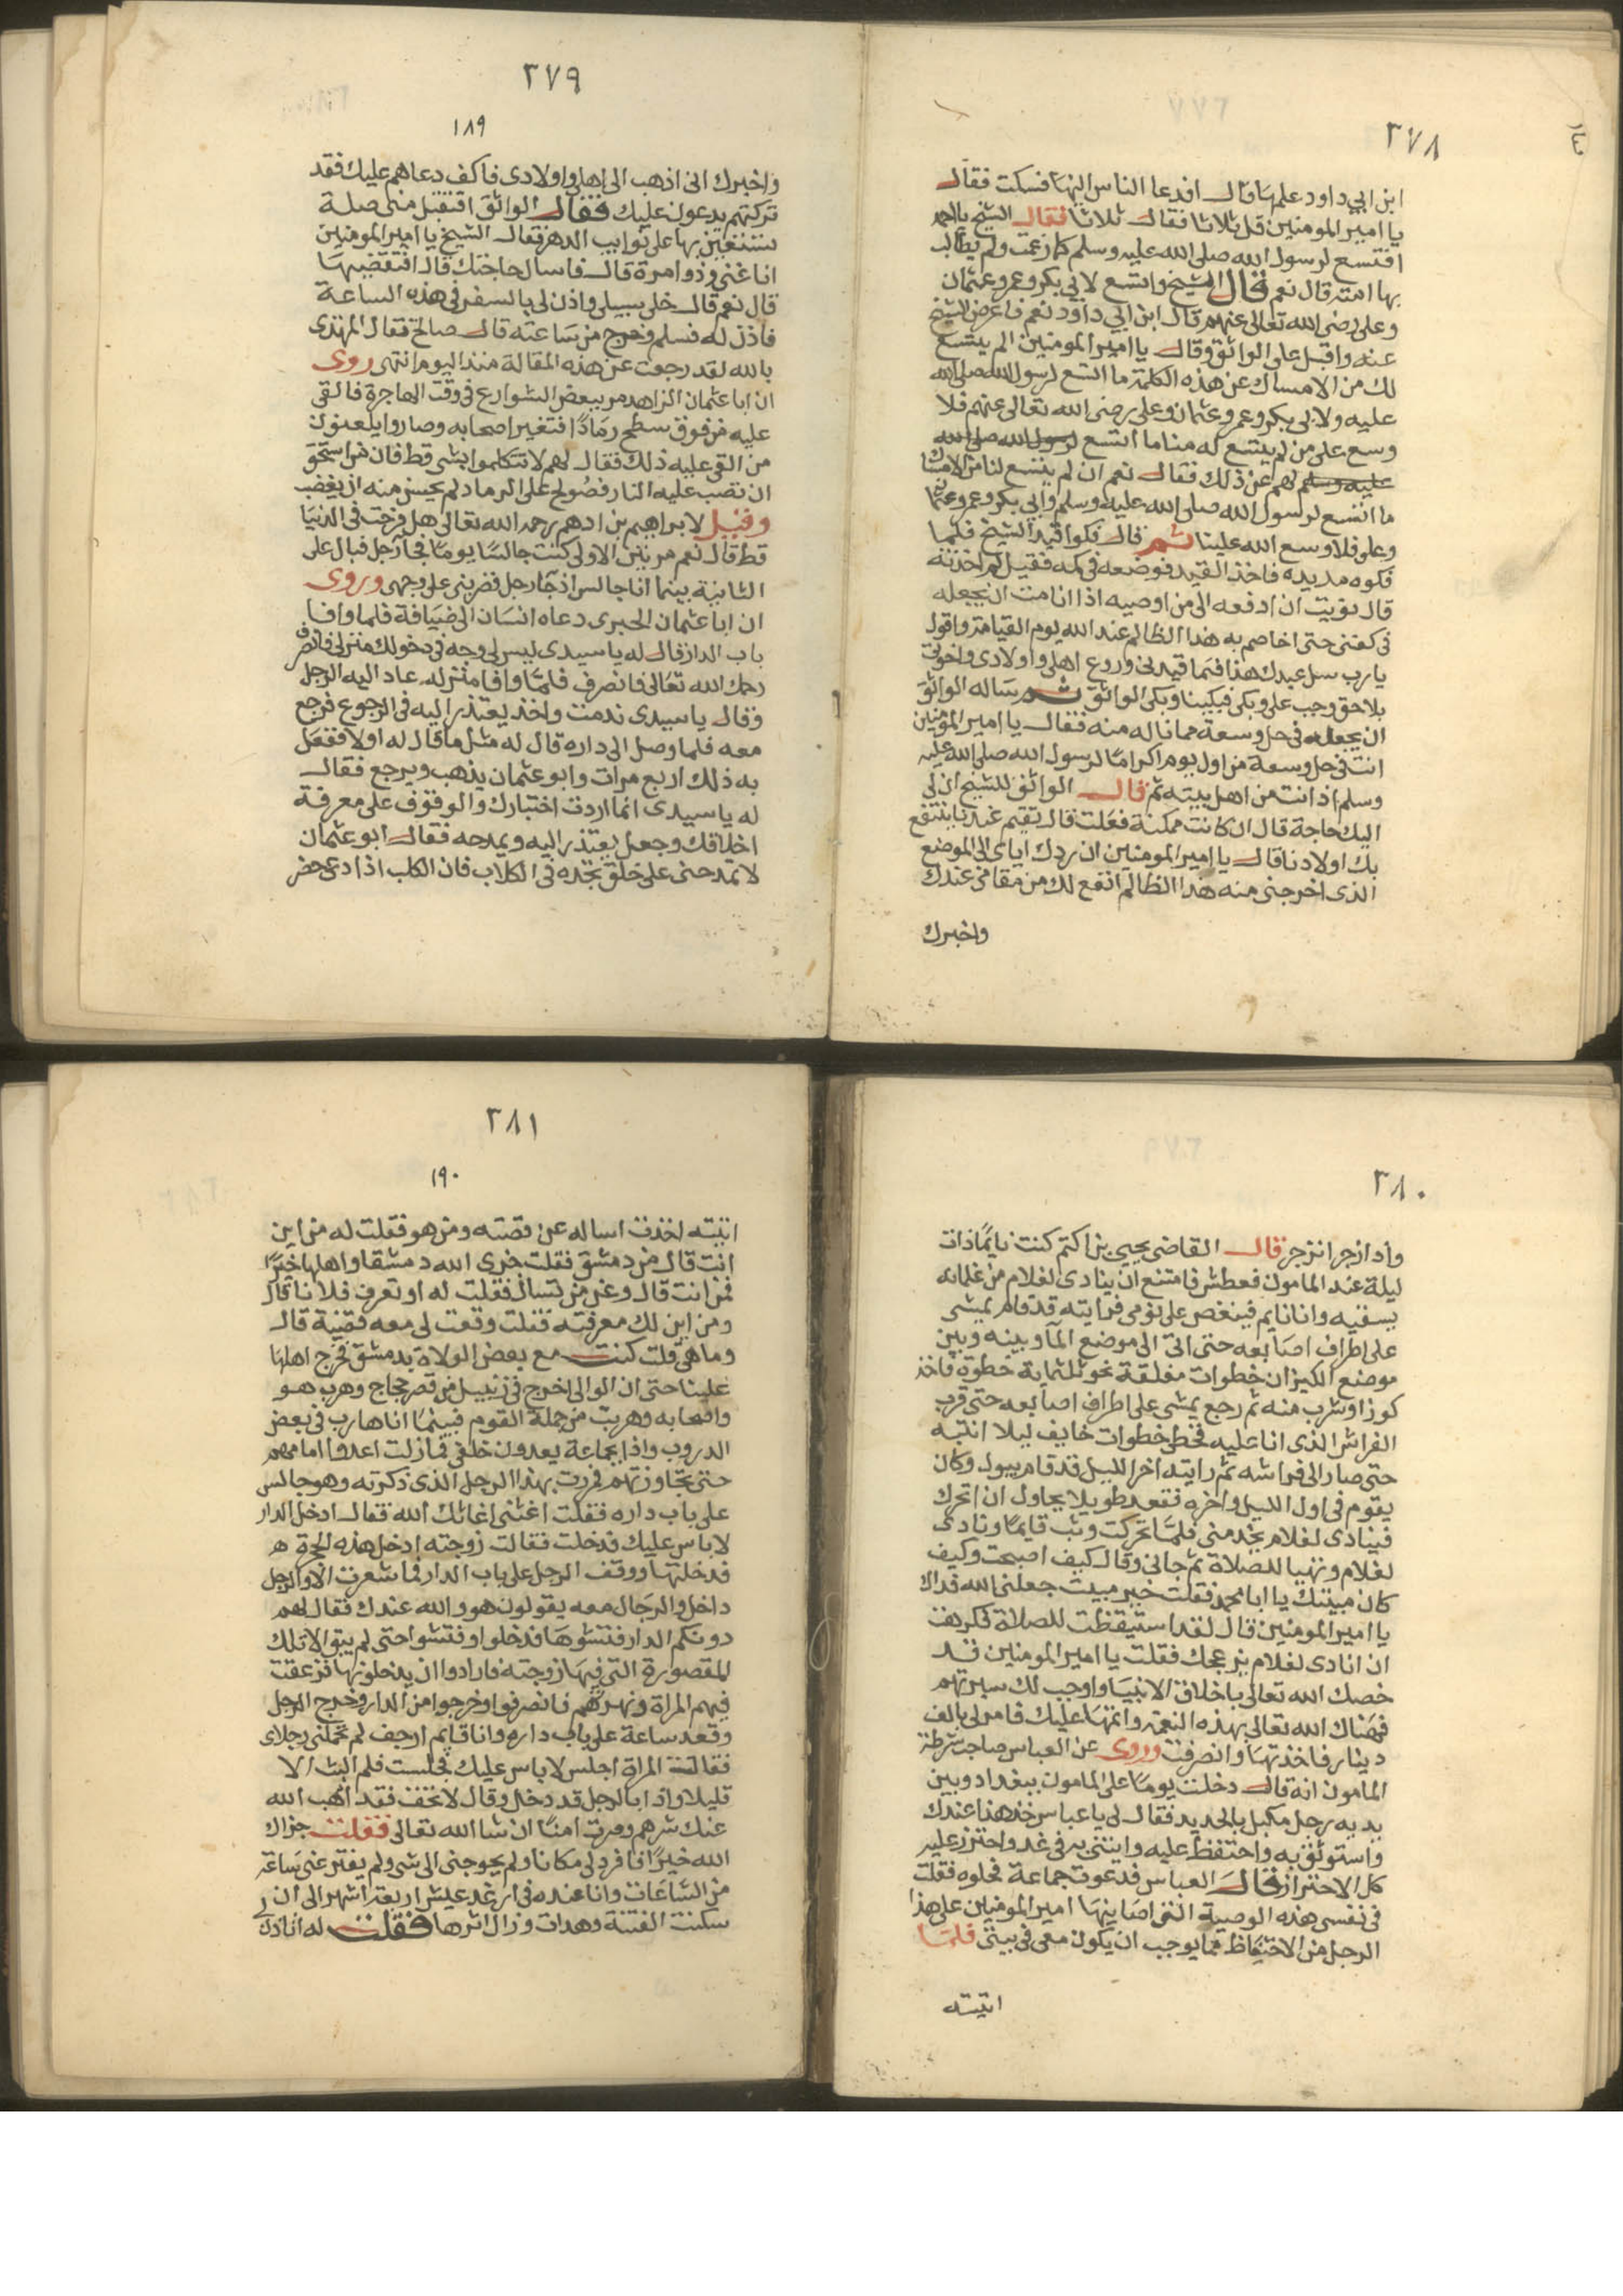 ٢٧٨
ابن ابي داود علمها قال افدعا الناس اليها فسكت فقال
يا امير المومنين قل ثلاثا فقال ثلاثا فقال الشيخ يا احمد
افتسع لرسول الله صلى الله عليه وسلم كما زعمت ولم يطالب
بها امته قال نعم قال الشيخ واتسع لابي بكر وعمر وعثمان
وعلى رضى الله تعالى عنهم قال ابن ابي داود نعم فاعرض الشيخ
عنه واقبل على الواثق وقال يا امير المومنين الم يتسع
لك من الامساك عن هذه الكلمة ما اتسع لرسول الله صلى الله
عليه ولابي بكر وعمر وعثمان وعلى رضى الله تعالى عنهم فلا
وسع على من لم يتسع له منا ما اتسع لرسول الله صلى الله
عليه وسلم لهم عن ذلك فقال نعم ان لم يتسع لنا من الامساك
ما اتسع لرسول الله صلى الله عليه وسلم وابي بكر وعمر وعثمان
وعلى فلا وسع الله علينا ثم قال فكوا قيد الشيخ فلما
فكوه مد يده فاخذ القيد فوضعه فى كمه فقيل لم اخذته
قال نويت ان ادفعه الى من اوصيه اذا انا مت ان يجعله
فى كفنى حتى اخاصم به هذا الظالم عند الله يوم القيامة واقول
يا رب سل عبدك هذا فيما قيدنى وروع اهلى واولادى واخوتى
بلا حق وجب على وبكى فبكينا وبكى الواثق ثم ساله الواثق
ان يجعله فى حل وسعة مما ناله منه فقال يا امير المؤمنين
انت فى حل وسعة من اول يوم اكراما لرسول الله صلى الله عليه
وسلم اذ انت من اهل بيته ثم قال الواثق للشيخ ان لى
اليك حاجة قال ان كانت ممكنة فعلت قال تقيم عندنا ينتفع
بك اولادنا قال يا امير المومنين ان ردك اياى الى الموضع
الذى اخرجنى منه هذا الظالم انفع لك من مقامى عندك
واخبرك
٢٧٩
١٨٩
واخبرك انى اذهب الى اهلى واولادى فاكف دعاهم عليك فقد
تركتهم يدعون عليك فقال الواثق افتقبل منى صلة
تستعين بها على نوايب الدهر فقال الشيخ يا امير المومنين
انا غنى وذو امرة قال فاسال حاجتك قال افتقضيها
قال نعم قال خلى سبيلى واذن لى بالسفر فى هذه الساعة
فاذن له فسلم وخرج من ساعته قال صالح فقال المهتدى
بالله لقد رجعت عن هذه المقالة منذ اليوم انتهى روى
ان ابا عثمان الزاهد مر ببعض الشوارع فى وقت الهاجرة فالقى
عليه من فوق سطح رمادا فتغير اصحابه وصاروا يلعنون
من القى عليه ذلك فقال لهم لا تتكلموا بشى قط فان من استحق
ان تصب عليه النار فصولح على الرماد لم يحسن منه ان يغضب
وقيل لابراهيم بن ادهم رحمه الله تعالى هل فرحت فى الدنيا
قط قال نعم مرتين الاولى كنت جالسا يوما فجا رجل فبال على
الثانية بينما انا جالس اذ جا رجل فضربنى على وجهى وروى
ان ابا عثمان الحيرى دعاه انسان الى ضيافة فلما وافا
باب الدار قال له يا سيدى ليس لى وجه فى دخولك منزلى فانصرف
رحمك الله تعالى فانصرف فلما وافا منزله عاد اليه الرجل
وقال يا سيدى ندمت واخذ يعتذر اليه فى الرجوع فرجع
معه فلما وصل الى داره قال له مثل ما قال له اولا ففعل
به ذلك اربع مرات وابو عثمان يذهب ويرجع فقال
له يا سيدى انما اردت اختبارك والوقوف على معرفة
اخلاقك وجعل يعتذر اليه ويمدحه فقال ابو عثمان
لا تمدحنى على خلق تجده فى الكلاب فان الكلب اذا دعى حضر
٢٨٠
واذا زجر انزجر قال القاضى يحيى بن اكتم كنت نايما ذات
ليلة عند المامون فعطش فامتنع ان ينادى لغلام من غلمانه
يسقيه وانا نايم فينغص على نومى فرايته قد قام يمشى
على اطراف اصابعه حتى اتى الى موضع الما وبينه وبين
موضع الكيزان خطوات مغلقة نحو ثلثماية خطوة فاخذ
كوزا وشرب منه ثم رجع يمشى على اطراف اصابعه حتى قرب
الفراش الذى انا عليه فخطى خطوات خايف ليلا انتبه
حتى صار الى فراشه ثم رايته اخر الليل قد قام يبول وكان
يقوم فى اول الليل واخره فقعد طويلا يحاول ان اتحرك
فينادى لغلام يخدمنى فلما تحركت وثب قايما ونادى
لغلام وتهيا للصلاة ثم جانى وقال كيف اصبحت وكيف
كان مبيتك يا ابا محمد فقلت خير مبيت جعلنى الله فداك
يا امير المومنين قال لقد استيقظت للصلاة فكرهت
ان انادى لغلام يزعجك فقلت يا امير المومنين قد
خصك الله تعالى باخلاق الانبيا واوجب لك سيرتهم
فهناك الله تعالى بهذه النعمة واتمها عليك فامر لى بالف
دينار فاخذتها وانصرفت وروى عن العباس صاحب شرطة
المامون انه قال دخلت يوما على المامون ببغداد وبين
يديه رجل مكبل بالحديد فقال لى يا عباس خذ هذا عندك
واستوثق به واحتفظ عليه وايتنى به فى غد واحترز عليه
كل الاحتراز قال العباس فدعوت جماعة فحلوه فقلت
فى نفسى هذه الوصية التى اصانيها امير المومنين على هذا
الرجل من الاحتفاظ مما يوجب ان يكون معى فى بيتى فلما
اتيته
٢٨١
١٩٠
اتيته اخذت اساله عن قصته ومن هو فقلت له من اين
انت قال من دمشق فقلت جزى الله دمشقا واهلها خيرا
فمن انت قال وعن من تسال فقلت له او تعرف فلانا قال
ومن اين لك معرفته فقلت وقعت لى معه قضية قال
وما هى قلت كنت مع بعض الولاة بدمشق فخرج اهلها
علينا حتى ان الوالى اخرج فى زنبيل من قصر حجاج وهرب هو
واصحابه وهربت من جملة القوم فبينما انا هارب فى بعض
الدروب واذا بجماعة يعدون خلفى فما زلت اعدوا امامهم
حتى تجاوزتهم فمررت بهذا الرجل الذى ذكرته وهو جالس
على باب داره فقلت اغثنى اغاثك الله فقال ادخل الدار
لا باس عليك فدخلت فقالت زوجته ادخل هذه الحجرة
فدخلتها ووقف الرجل على باب الدار فما شعرت الا والرجل
داخل والرجال معه يقولون هو والله عندك فقال لهم
دونكم الدار فتشوها فدخلوا وفتشوا حتى لم يبق الا تلك
المقصورة التى فيها زوجته فارادوا ان يدخلونها فزعقت
فيهم المراة ونهرتهم فانصرفوا وخرجوا من الدار وخرج الرجل
وقعد ساعة على باب داره وانا قايم ارجف لم تحملنى رجلاى
فقالت المراة اجلس لا باس عليك فجلست فلم البث الا
قليلا واذا بالرجل قد دخل وقال لا تخف فقد اذهب الله
عنك شرهم وصرت امنا ان شا الله تعالى فقلت جزاك
الله خيرا فافرد لى مكانا ولم يحوجنى الى شى ولم يفتر عنى ساعة
من الساعات وانا عنده فى ارغد عيش اربعة اشهر الى ان
سكنت الفتنة وهدات وزال اثرها فقلت له